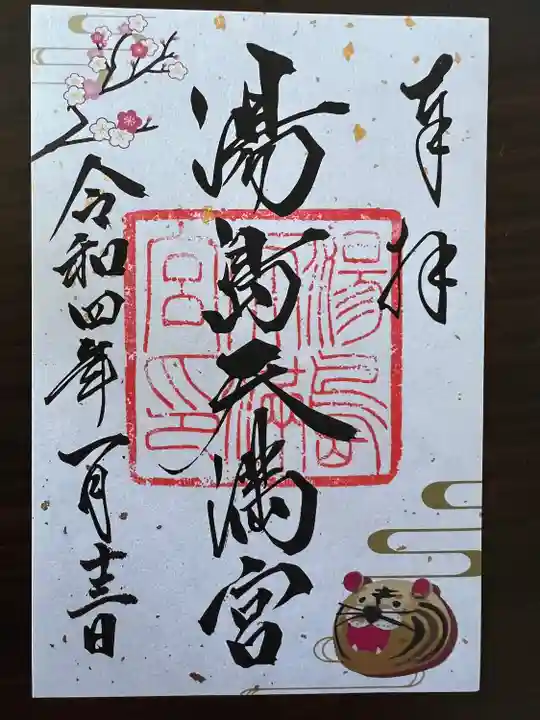 奉拝
湯島天満宮
湯島天満宮印
令和四年一月十三日